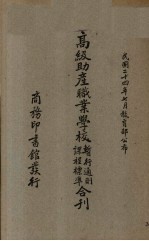 民國二十四年七月教育部公布
高級助產職業學校暫行通則
課程標準合刊
商務印書館發行